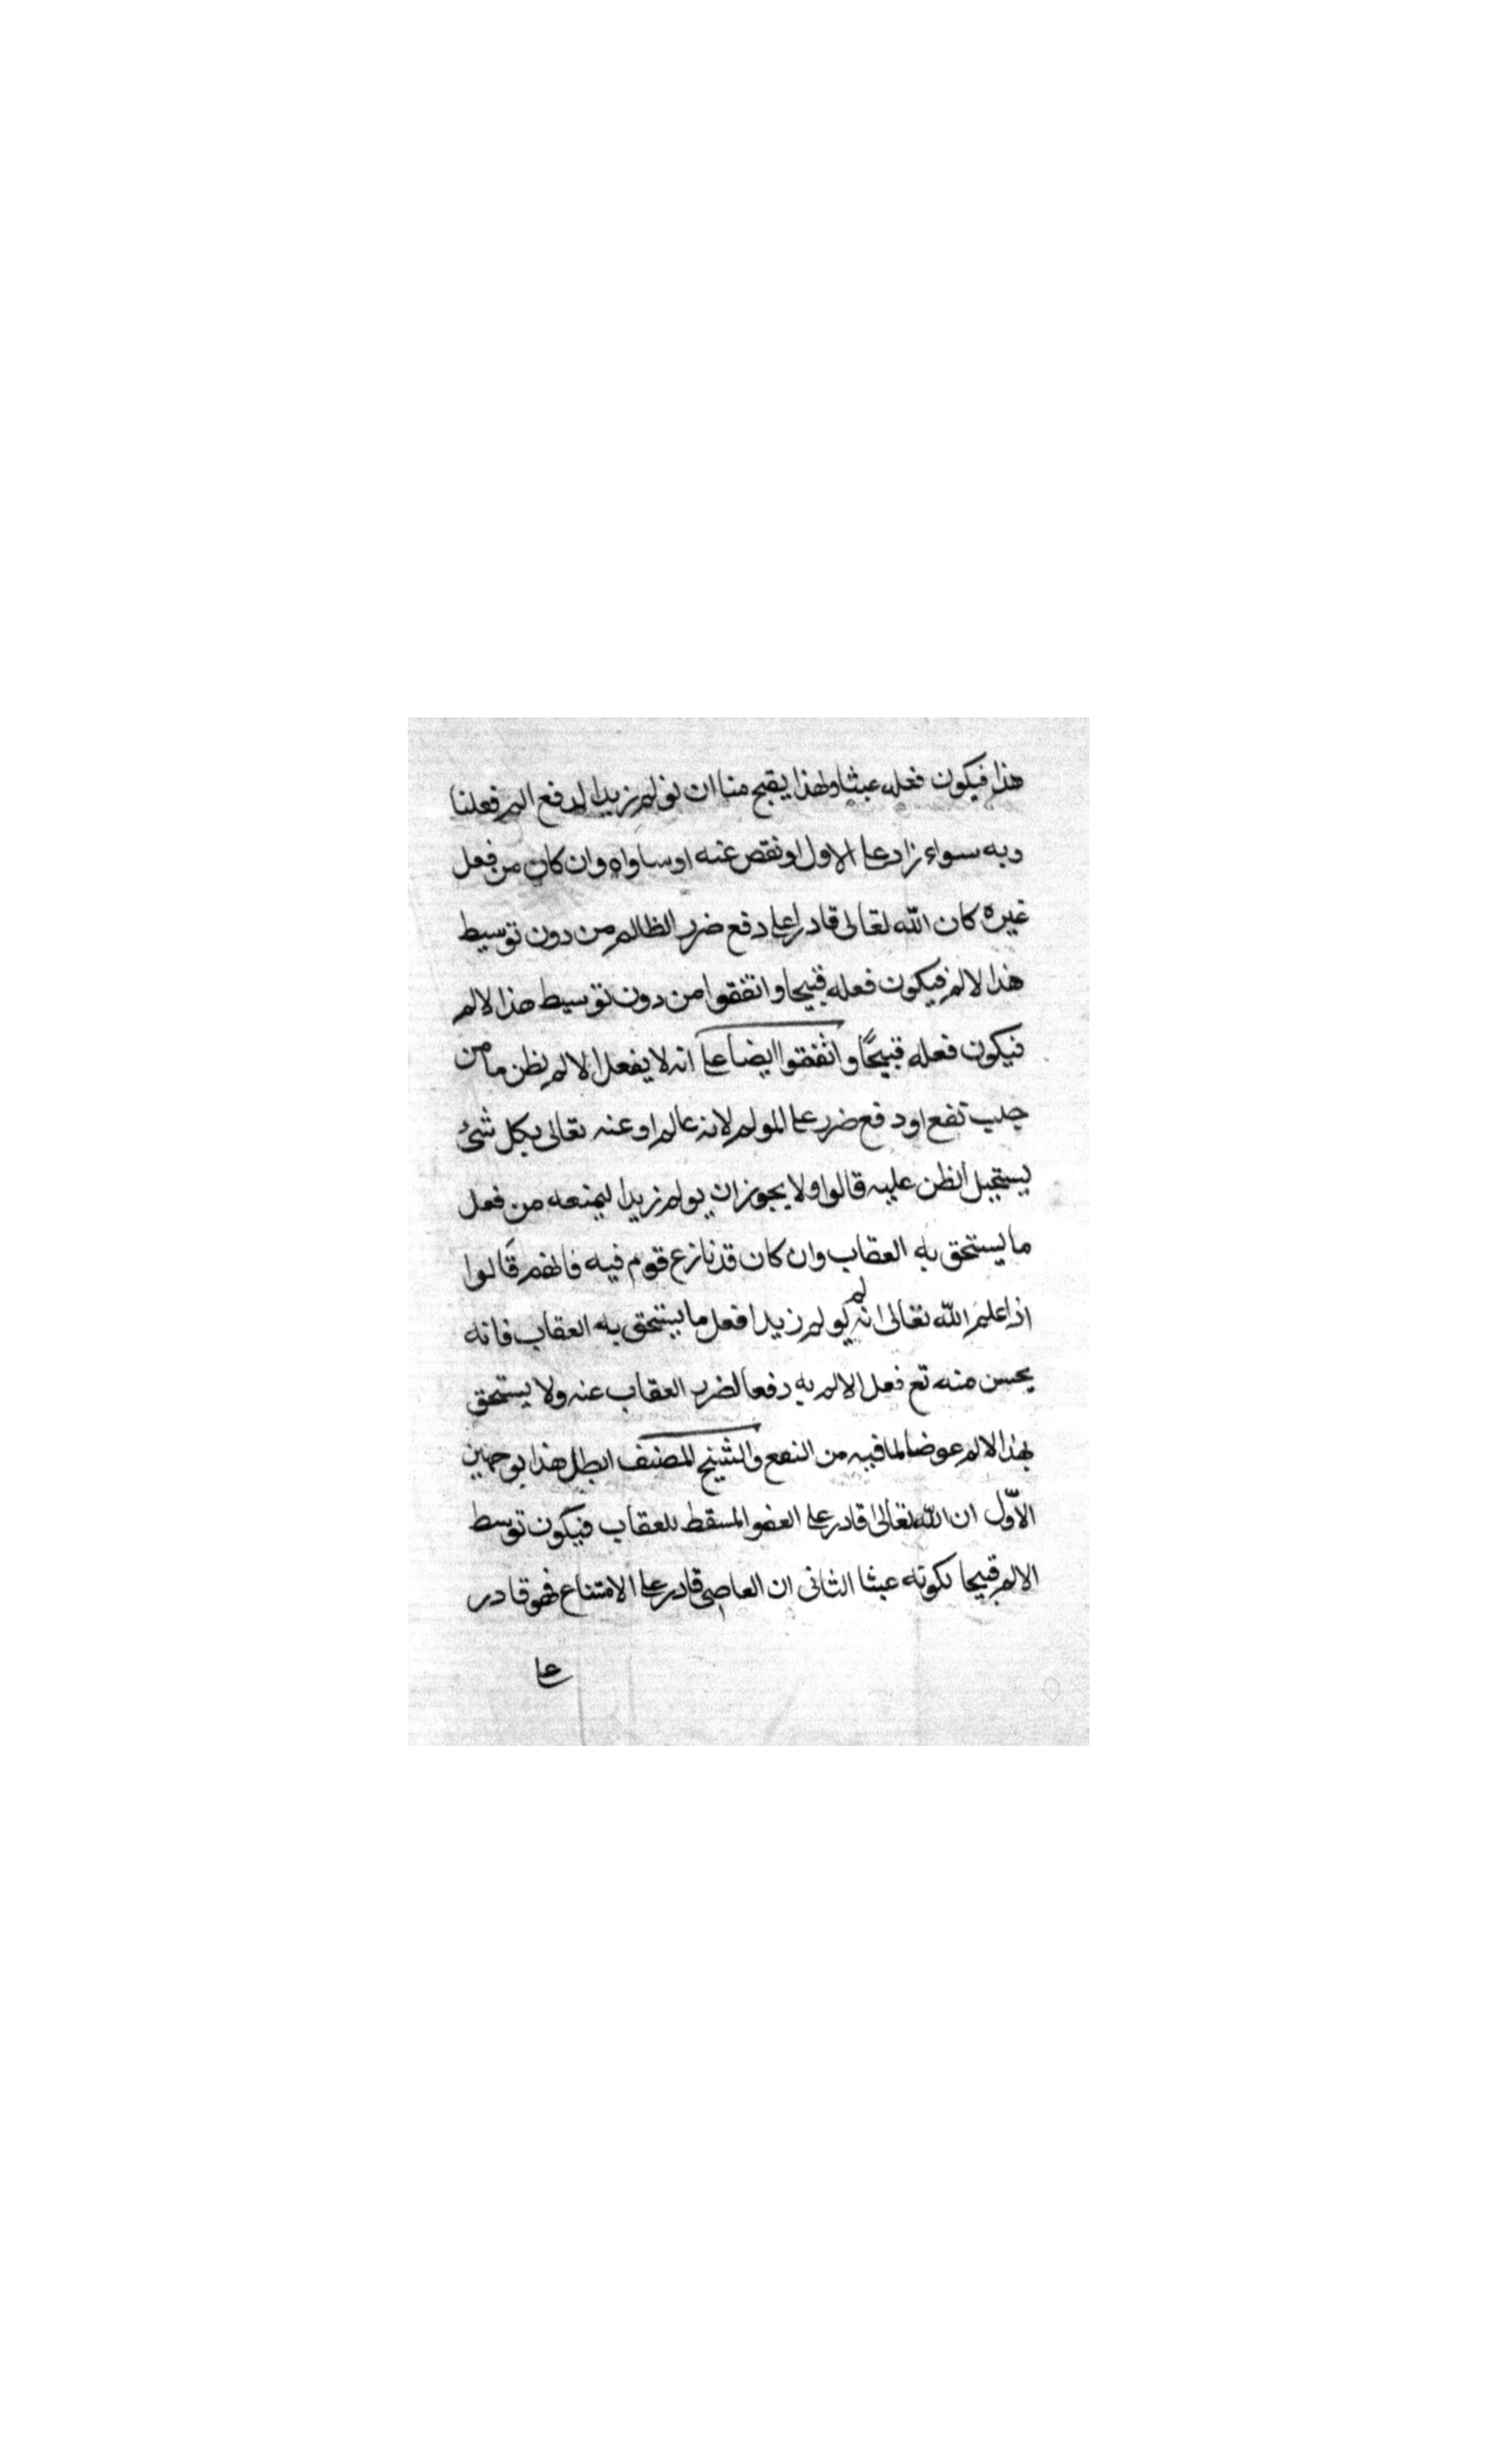 هذا فيكون فعله عبثا ولهذا يقبح منا ان نولم زيدا لدفع الم فعلنا
ه به سواء زاد على الاول او نقص عنه او ساواه وان كان من فعل
غيره كان الله تعالى قادرا على دفع ضرر الظالم من دون توسيط
هذا لالم فيكون فعله قبيحا واتفقوا من دون توسيط هذا لالم
فيكون فعله قبيحًا واتفقوا ايضا على انه لا يفعل الالم لظن ما من
جلب نفع او دفع ضرر على المولم لانه عالم او عنه تعالى بكل شئ
يستحيل الظن عليه قالوا ولا يجوز ان يولم زيدا ليمنعه من فعل
ما يستحق به العقاب وان كان قد نازع قوم فيه فانهم قالوا
اذا علم الله تعالى انه لم يولم زيدا فعل ما يستحق به العقاب فانه
يحسن منه تع فعل الالم به دفعا لضرر العقاب عنه ولا يستحق
بهذا الالم عوضا لما فيه من النفع والشيخ المصنف ابطل هذا بوجهين
الاوّل ان الله تعالى قادر على العفو المسقط للعقاب فيكون توسط
الالم قبيحا لكونه عبثا الثانى ان العاصى قادر على الامتناع فهو قادر
على